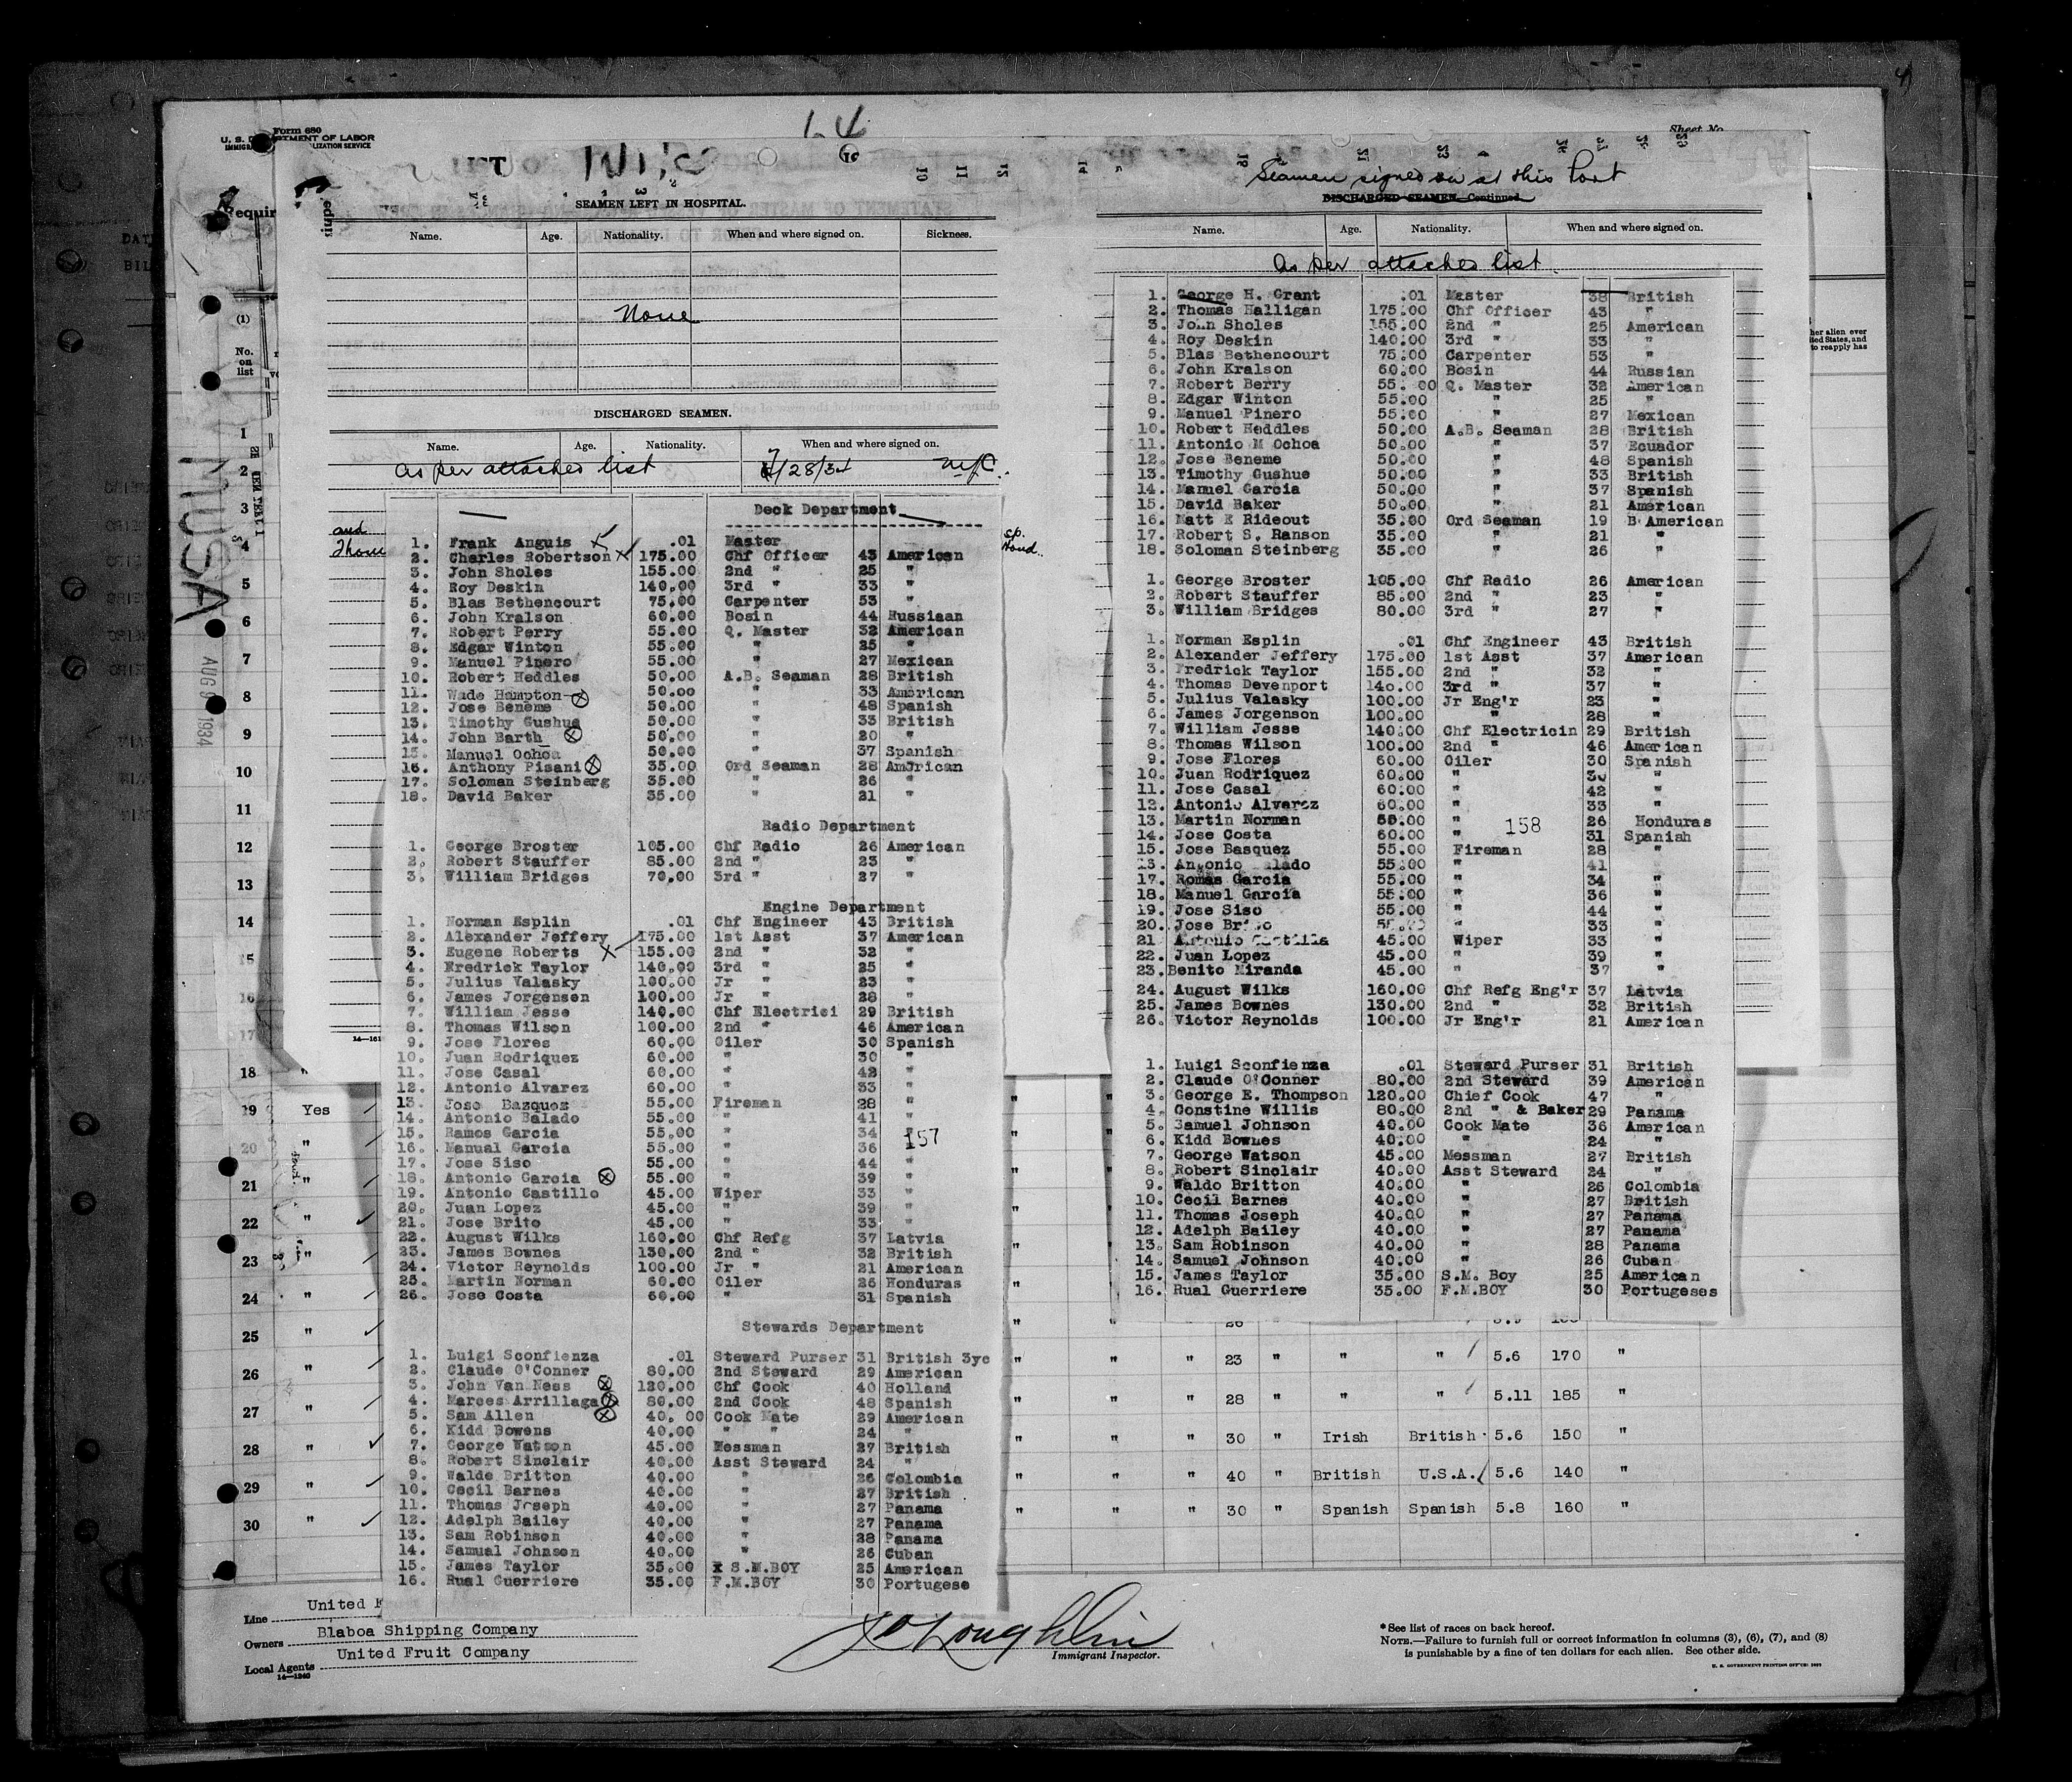 Form 680
U. S. DEPARTMENT OF LABOR
LIST
14
Sheet No.
SEAMEN LEFT IN HOSPITAL.
Name. Age. Nationality. When and where signed on. Sickness.
None
DISCHARGED SEAMEN.
Name. Age. Nationality. When and where signed on.
As per attached list 7/28/34 nyc.
Deck Department
1. Frank Anguis .01 Master
2. Charles Robertson 175.00 Chf Officer 43 American
3. John Sholes 155.00 2nd " 25 "
4. Roy Deskin 140.00 3rd " 33 "
5. Blas Bethencourt 75.00 Carpenter 53 "
6. John Kralson 60.00 Bosin 44 Russiaan
7. Robert Perry 55.00 Q. Master 32 American
8. Edgar Winton 55.00 " 25 "
9. Manuel Pinero 55.00 " 27 Mexican
10. Robert Heddles 50.00 A.B. Seaman 28 British
11. Wade Hampton 50.00 " 33 American
12. Jose Beneme 50.00 " 48 Spanish
13. Timothy Gushue 50.00 " 33 British
14. John Barth 50.00 " 20 "
15. Manuel Ochoa 50.00 " 37 Spanish
16. Anthony Pisani 35.00 Ord Seaman 28 American
17. Soloman Steinberg 35.00 " 26 "
18. David Baker 35.00 " 21 "
Radio Department
1. George Broster 105.00 Chf Radio 26 American
2. Robert Stauffer 85.00 2nd " 23 "
3. William Bridges 70.00 3rd " 27 "
Engine Department
1. Norman Esplin .01 Chf Engineer 43 British
2. Alexander Jeffery 175.00 1st Asst 37 American
3. Eugene Roberts 155.00 2nd " 32 "
4. Fredrick Taylor 140.00 3rd " 25 "
5. Julius Valasky 100.00 Jr " 23 "
6. James Jorgenson 100.00 Jr " 28 "
7. William Jesse 140.00 Chf Electrici 29 British
8. Thomas Wilson 100.00 2nd " 46 American
9. Jose Flores 60.00 Oiler 30 Spanish
10. Juan Rodriquez 60.00 " 30 "
11. Jose Casal 60.00 " 42 "
12. Antonio Alvarez 60.00 " 33 "
13. Jose Bazquez 55.00 Fireman 28 "
14. Antonio Balado 55.00 " 41 "
15. Ramos Garcia 55.00 " 34 "
157
16. Manual Garcia 55.00 " 36 "
17. Jose Siso 55.00 " 44 "
18. Antonio Garcia 55.00 " 39 "
19. Antonio Castillo 45.00 Wiper 33 "
20. Juan Lopez 45.00 " 39 "
21. Jose Brito 45.00 " 33 "
22. August Wilks 160.00 Chf Refg 37 Latvia
23. James Bownes 130.00 2nd " 32 British
24. Victor Reynolds 100.00 Jr " 21 American
25. Martin Norman 60.00 Oiler 26 Honduras
26. Jose Costa 60.00 " 31 Spanish
Stewards Department
1. Luigi Sconfienza .01 Steward Purser 31 British 3yc
2. Claude O'Conner 80.00 2nd Steward 29 American
3. John Van Ness 120.00 Chf Cook 40 Holland
4. Marces Arrillaga 80.00 2nd Cook 48 Spanish
5. Sam Allen 40.00 Cook Mate 29 American
6. Kidd Bowens 40.00 " " 24 "
7. George Watson 45.00 Messman 27 British
8. Robert Sinclair 40.00 Asst Steward 24 "
9. Walde Britton 40.00 " 26 Colombia
10. Cecil Barnes 40.00 " 27 British
11. Thomas Joseph 40.00 " 27 Panama
12. Adelph Bailey 40.00 " 27 Panama
13. Sam Robinson 40.00 " 28 Panama
14. Samual Johnson 40.00 " 26 Cuban
15. James Taylor 35.00 x S.M.BOY 25 American
16. Rual Guerriere 35.00 F.M.BOY 30 Portugese
Seamen signed on at this Port
DISCHARGED SEAMEN—Continued
Name. Age. Nationality. When and where signed on.
As per attached list.
1. George H. Grant .01 Master 38 British
2. Thomas Halligan 175.00 Chf Officer 43 "
3. John Sholes 155.00 2nd " 25 American
4. Roy Deskin 140.00 3rd " 33 "
5. Blas Bethencourt 75.00 Carpenter 53 "
6. John Kralson 60.00 Bosin 44 Russian
7. Robert Berry 55.00 Q. Master 32 American
8. Edgar Winton 55.00 " 25 "
9. Manuel Pinero 55.00 " 27 Mexican
10. Robert Heddles 50.00 A.B. Seaman 28 British
11. Antonio M Ochoa 50.00 " 37 Ecuador
12. Jose Beneme 50.00 " 48 Spanish
13. Timothy Gushue 50.00 " 33 British
14. Manuel Garcia 50.00 " 37 Spanish
15. David Baker 50.00 " 21 American
16. Matt E Rideout 35.00 Ord Seaman 19 B American
17. Robert S. Ranson 35.00 " 21 "
18. Soloman Steinberg 35.00 " 26 "
1. George Broster 105.00 Chf Radio 26 American
2. Robert Stauffer 85.00 2nd " 23 "
3. William Bridges 80.00 3rd " 27 "
1. Norman Esplin .01 Chf Engineer 43 British
2. Alexander Jeffery 175.00 1st Asst 37 American
3. Fredrick Taylor 155.00 2nd " 32 "
4. Thomas Devenport 140.00 3rd " 37 "
5. Julius Valasky 100.00 Jr Eng'r 23 "
6. James Jorgenson 100.00 " 28 "
7. William Jesse 140.00 Chf Electricin 29 British
8. Thomas Wilson 100.00 2nd " 46 American
9. Jose Flores 60.00 Oiler 30 Spanish
10. Juan Rodriquez 60.00 " 30 "
11. Jose Casal 60.00 " 42 "
12. Antonio Alvarez 60.00 " 33 "
13. Martin Norman " 26 Honduras
158
14. Jose Costa 60.00 " 31 Spanish
15. Jose Basquez 55.00 Fireman 28 "
Antonio 55.00 " 41 "
17. Romas Garcia 55.00 " 34 "
18. Manuel Garcia 55.00 " 36 "
19. Jose Siso 55.00 " 44 "
20. Jose 55.00 " 33 "
21 Antonio Castilla 45.00 Wiper 33 "
22. Juan Lopez 45.00 " 39 "
23. Benito Miranda 45.00 " 37 "
24. August Wilks 160.00 Chf Refg Eng'r 37 Latvia
25. James Bownes 130.00 2nd " 32 British
26. Victor Reynolds 100.00 Jr Eng'r 21 American
1. Luigi Sconfienza .01 Steward Purser 31 British
2. Claude O'Conner 80.00 2nd Steward 39 American
3. George E. Thompson 120.00 Chief Cook 47 "
4. Constine Willis 80.00 2nd " & Baker 29 Panama
5. Samuel Johnson 40.00 Cook Mate 36 American
6. Kidd Bownes 40.00 " 24 "
7. George Watson 45.00 Messman 27 British
8. Robert Sinclair 40.00 Asst Steward 24 "
9. Waldo Britton 40.00 " 26 Colombia
10. Cecil Barnes 40.00 " 27 British
11. Thomas Joseph 40.00 " 27 Panama
12. Adelph Bailey 40.00 " 27 Panama
13. Sam Robinson 40.00 " 28 Panama
14. Samuel Johnson 40.00 " 26 Cuban
15. James Taylor 35.00 S.M. Boy 25 American
16. Rual Guerriere 35.00 F.M.BOY 30 Portugeses
" " " 23 " " " 5.6 170 "
" " " 28 " " " 5.11 185 "
" " " 30 " Irish British 5.6 150 "
" " " 40 " British U.S.A. 5.6 140 "
" " " 30 " Spanish Spanish 5.8 160 "
(1)
No. on list
1
2
3
4
5
6
7
8
9
10
11
12
13
14
15
16
17
18 "
19 Yes
20 "
21 "
22 "
23 "
24 "
25 "
26 "
27 "
28 "
29 "
30 "
MUSA
AUG 9 1934
Line United
Owners Blaboa Shipping Company
Local Agents United Fruit Company
14—1240
Immigrant Inspector.
*See list of races on back hereof.
NOTE.—Failure to furnish full or correct information in columns (3), (6), (7), and (8)
is punishable by a fine of ten dollars for each alien. See other side.